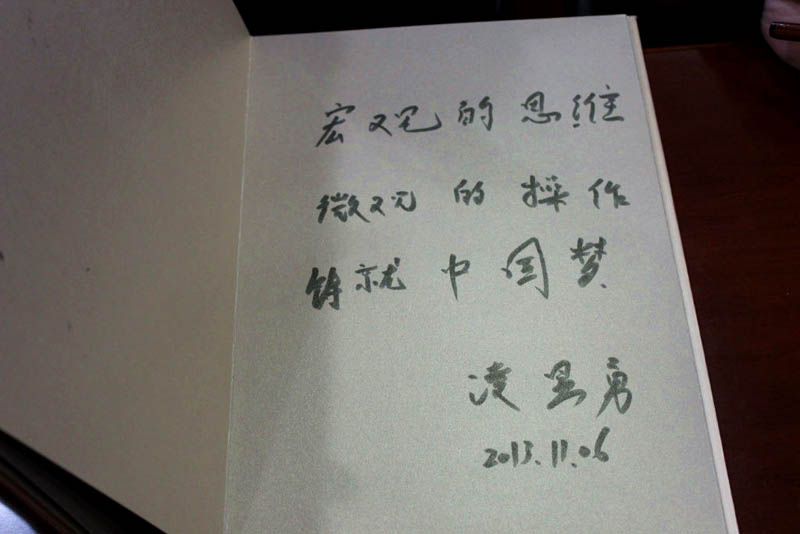 宏观的思维
微观的操作
铸就中国梦
凌 勇
2013.11.06